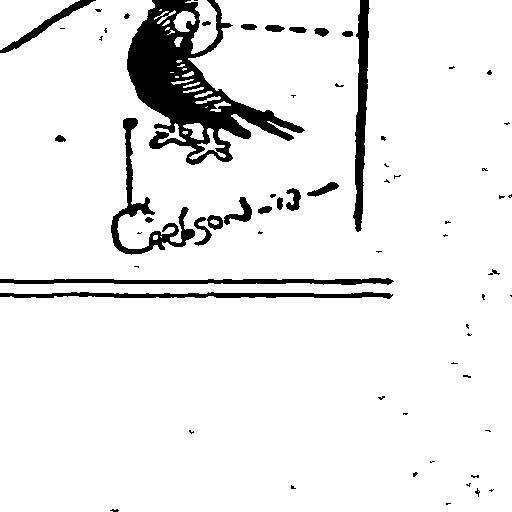 Carlson -13-